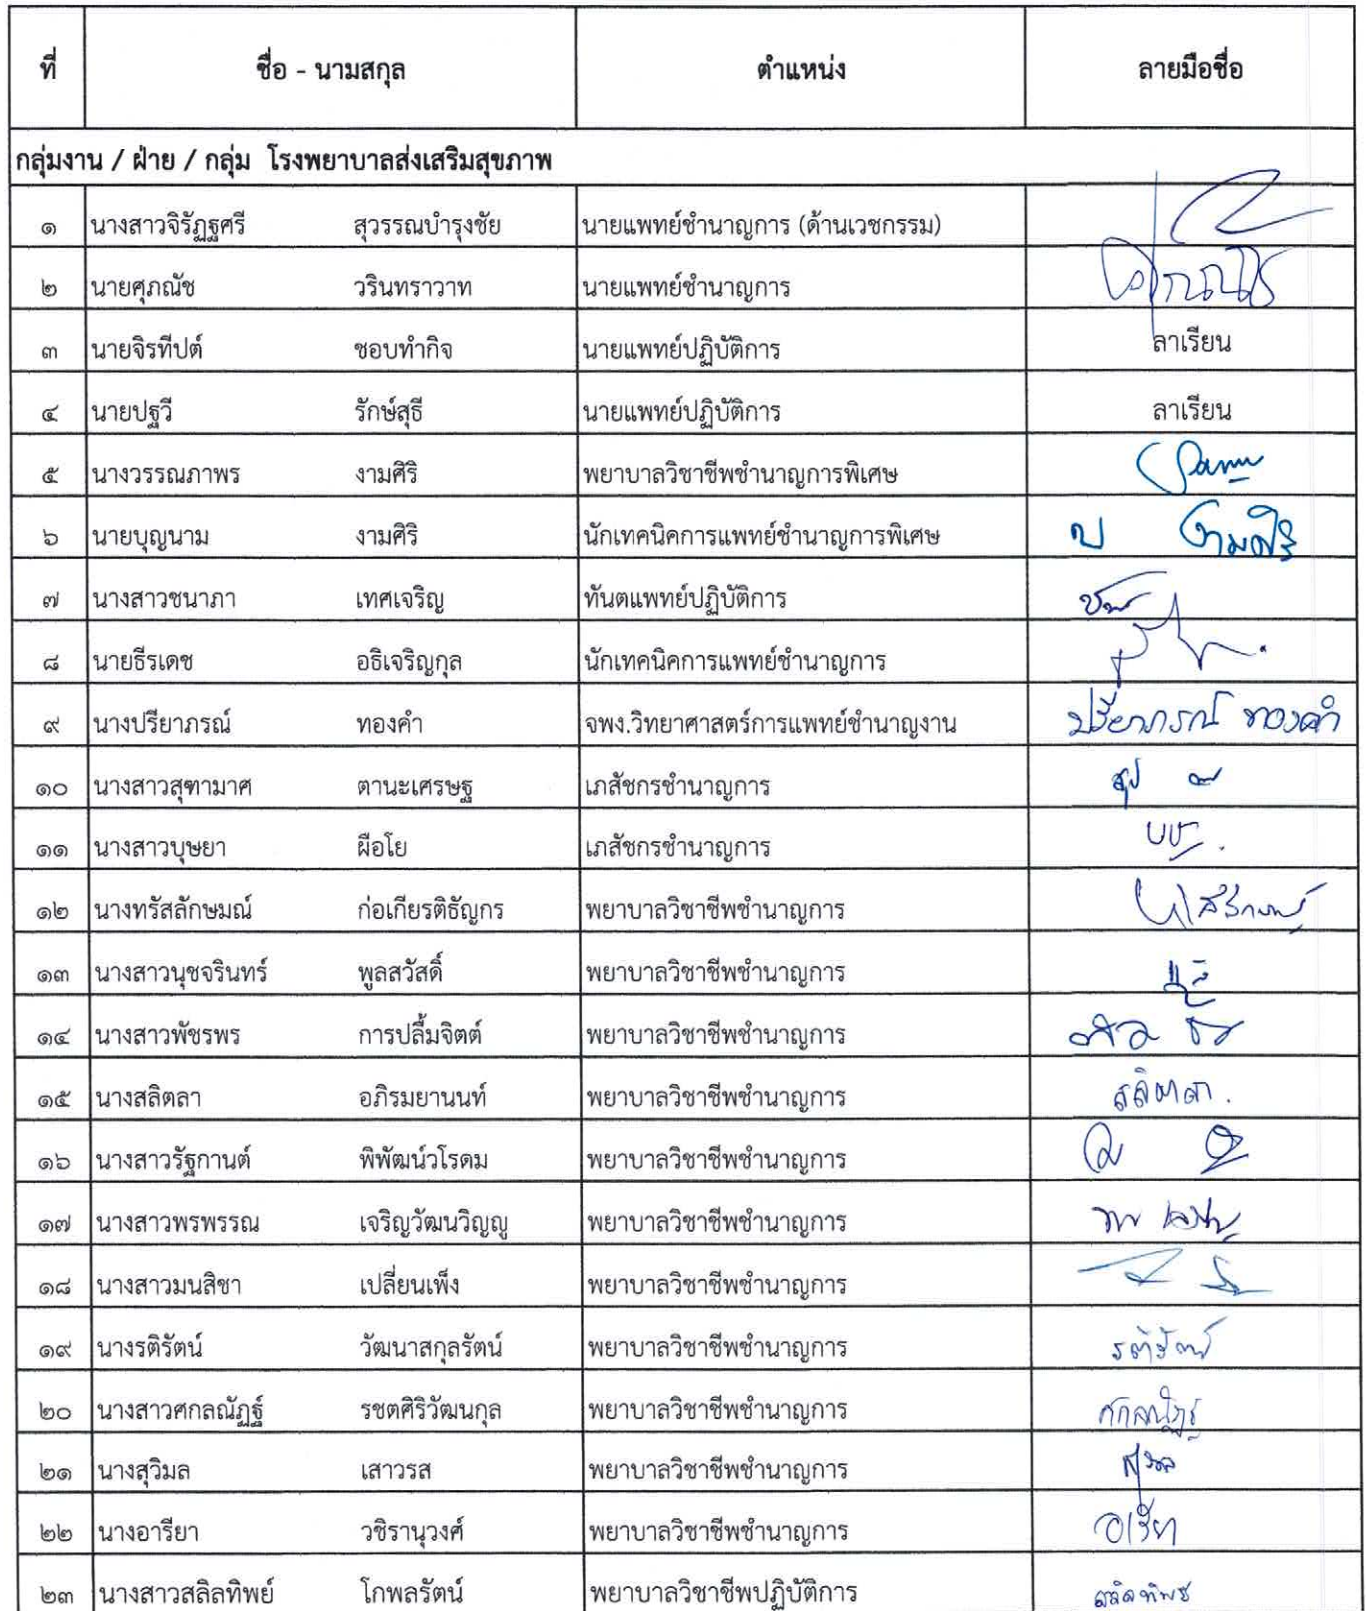 ที่ ชื่อ - นามสกุล ตำแหน่ง ลายมือชื่อ
กลุ่มงาน / ฝ่าย / กลุ่ม โรงพยาบาลส่งเสริมสุขภาพ
๑ นางสาวจิรัฏฐศรี สุวรรณบำรุงชัย นายแพทย์ชำนาญการ (ด้านเวชกรรม)
๒ นายศุภณัช วรินทราวาท นายแพทย์ชำนาญการ ศุภณัช
๓ นายจิรทีปต์ ชอบทำกิจ นายแพทย์ปฏิบัติการ ลาเรียน
๔ นายปฐวี รักษ์สุธี นายแพทย์ปฏิบัติการ ลาเรียน
๕ นางวรรณภาพร งามศิริ พยาบาลวิชาชีพชำนาญการพิเศษ
๖ นายบุญนาม งามศิริ นักเทคนิคการแพทย์ชำนาญการพิเศษ บ งามศิริ
๗ นางสาวชนาภา เทศเจริญ ทันตแพทย์ปฏิบัติการ
๘ นายธีรเดช อธิเจริญกุล นักเทคนิคการแพทย์ชำนาญการ
๙ นางปรียาภรณ์ ทองคำ จพง.วิทยาศาสตร์การแพทย์ชำนาญงาน ปรียาภรณ์ ทองคำ
๑๐ นางสาวสุฑามาศ ตานะเศรษฐ เภสัชกรชำนาญการ
๑๑ นางสาวบุษยา ผือโย เภสัชกรชำนาญการ
๑๒ นางทรัสลักษมณ์ ก่อเกียรติธัญกร พยาบาลวิชาชีพชำนาญการ
๑๓ นางสาวนุชจรินทร์ พูลสวัสดิ์ พยาบาลวิชาชีพชำนาญการ
๑๔ นางสาวพัชรพร การปลื้มจิตต์ พยาบาลวิชาชีพชำนาญการ
๑๕ นางสลิตลา อภิรมยานนท์ พยาบาลวิชาชีพชำนาญการ สลิตลา.
๑๖ นางสาวรัฐกานต์ พิพัฒน์วโรดม พยาบาลวิชาชีพชำนาญการ
๑๗ นางสาวพรพรรณ เจริญวัฒนวิญญู พยาบาลวิชาชีพชำนาญการ
๑๘ นางสาวมนสิชา เปลี่ยนเพ็ง พยาบาลวิชาชีพชำนาญการ
๑๙ นางรติรัตน์ วัฒนาสกุลรัตน์ พยาบาลวิชาชีพชำนาญการ รติรัตน์
๒๐ นางสาวศกลณัฏฐ์ รชตศิริวัฒนกุล พยาบาลวิชาชีพชำนาญการ ศกลณัฏฐ์
๒๑ นางสุวิมล เสาวรส พยาบาลวิชาชีพชำนาญการ สุวิมล
๒๒ นางอารียา วชิรานุวงศ์ พยาบาลวิชาชีพชำนาญการ อารียา
๒๓ นางสาวสลิลทิพย์ โกพลรัตน์ พยาบาลวิชาชีพปฏิบัติการ สลิลทิพย์